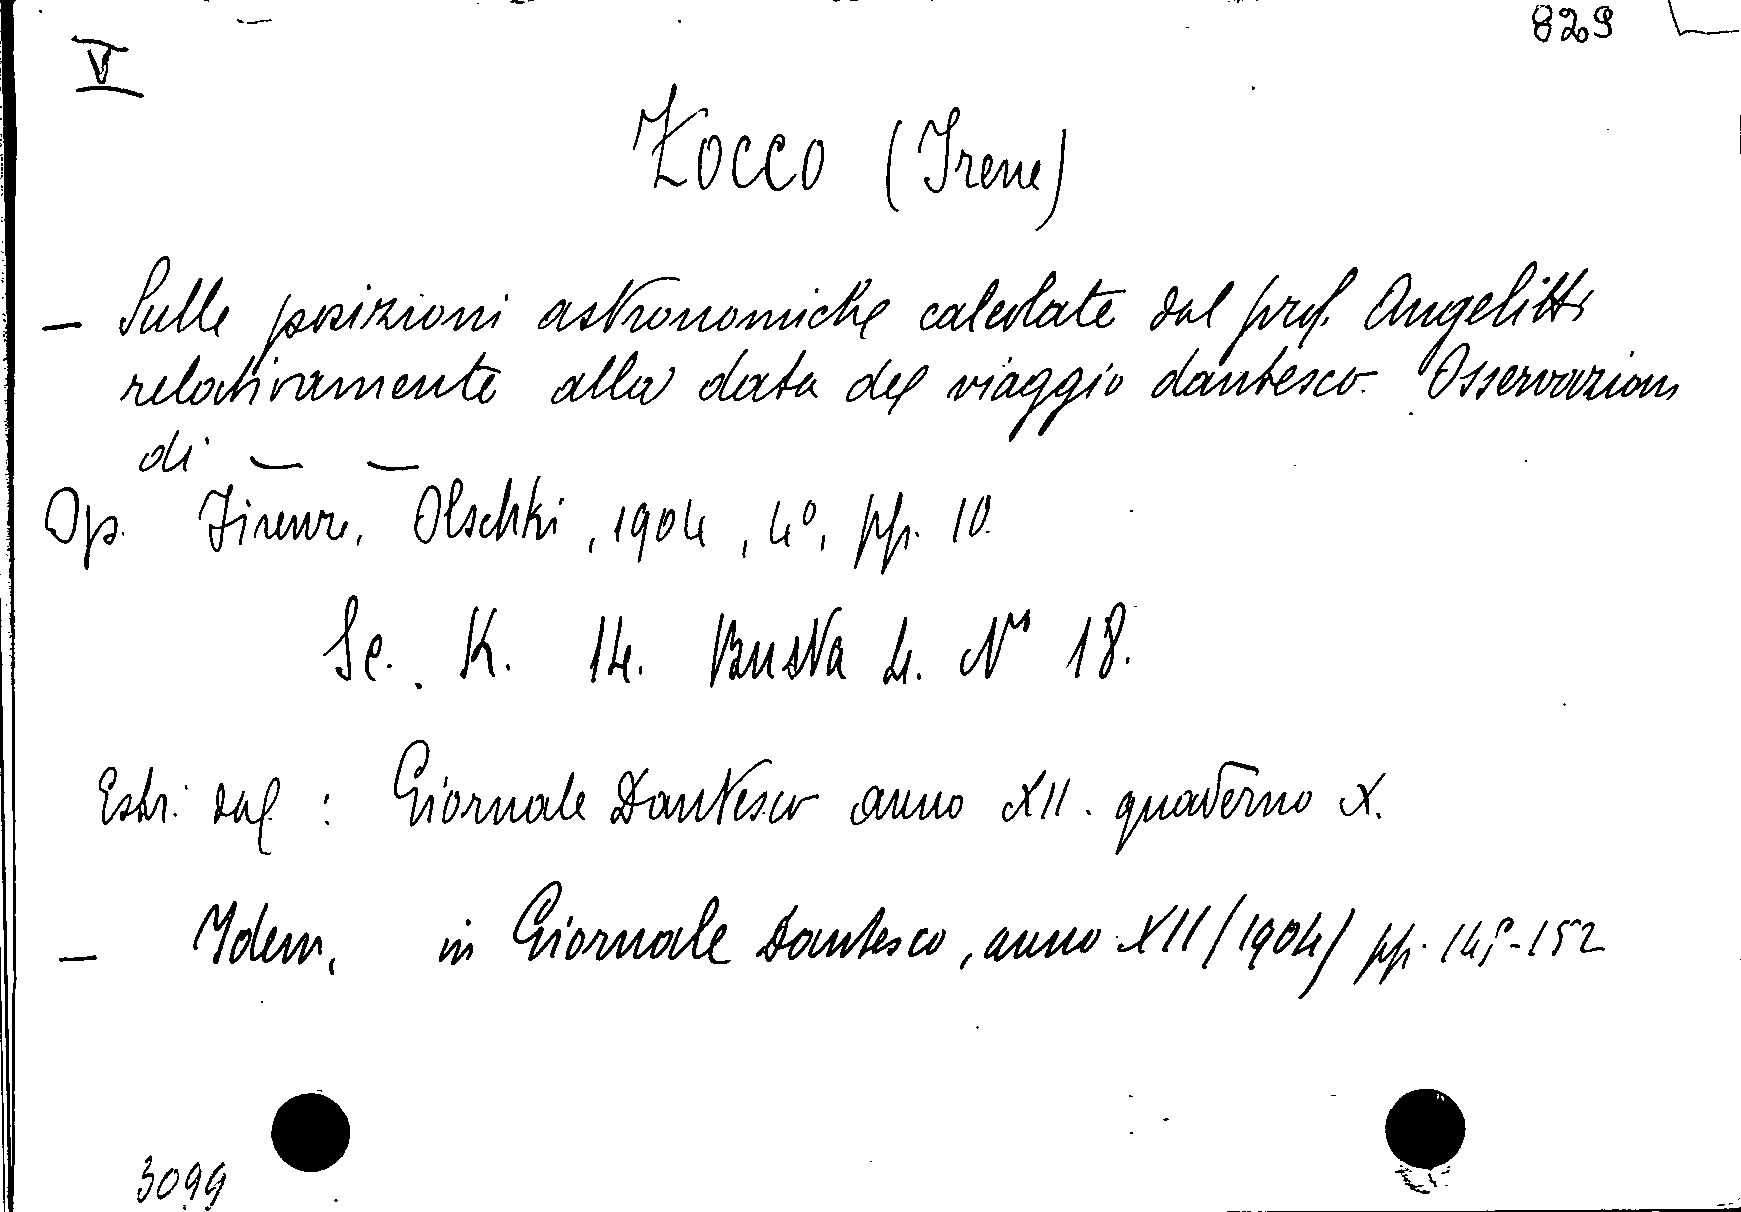 829
V
ZOCCO (Irene)
– Sulle posizioni astronomiche calcolate dal prof. Angelitti
relativamente alla data del viaggio dantesco. Osservazioni
di — —
Op. Firenze, Olschki, 1904, 4º, pp. 10.
Sc. K. 14. Busta 4. Nº 18.
Estr. dal : Giornale Dantesco anno XII. quaderno X.
– Idem, in Giornale Dantesco, anno XII (1904) pp. 145-152
3099